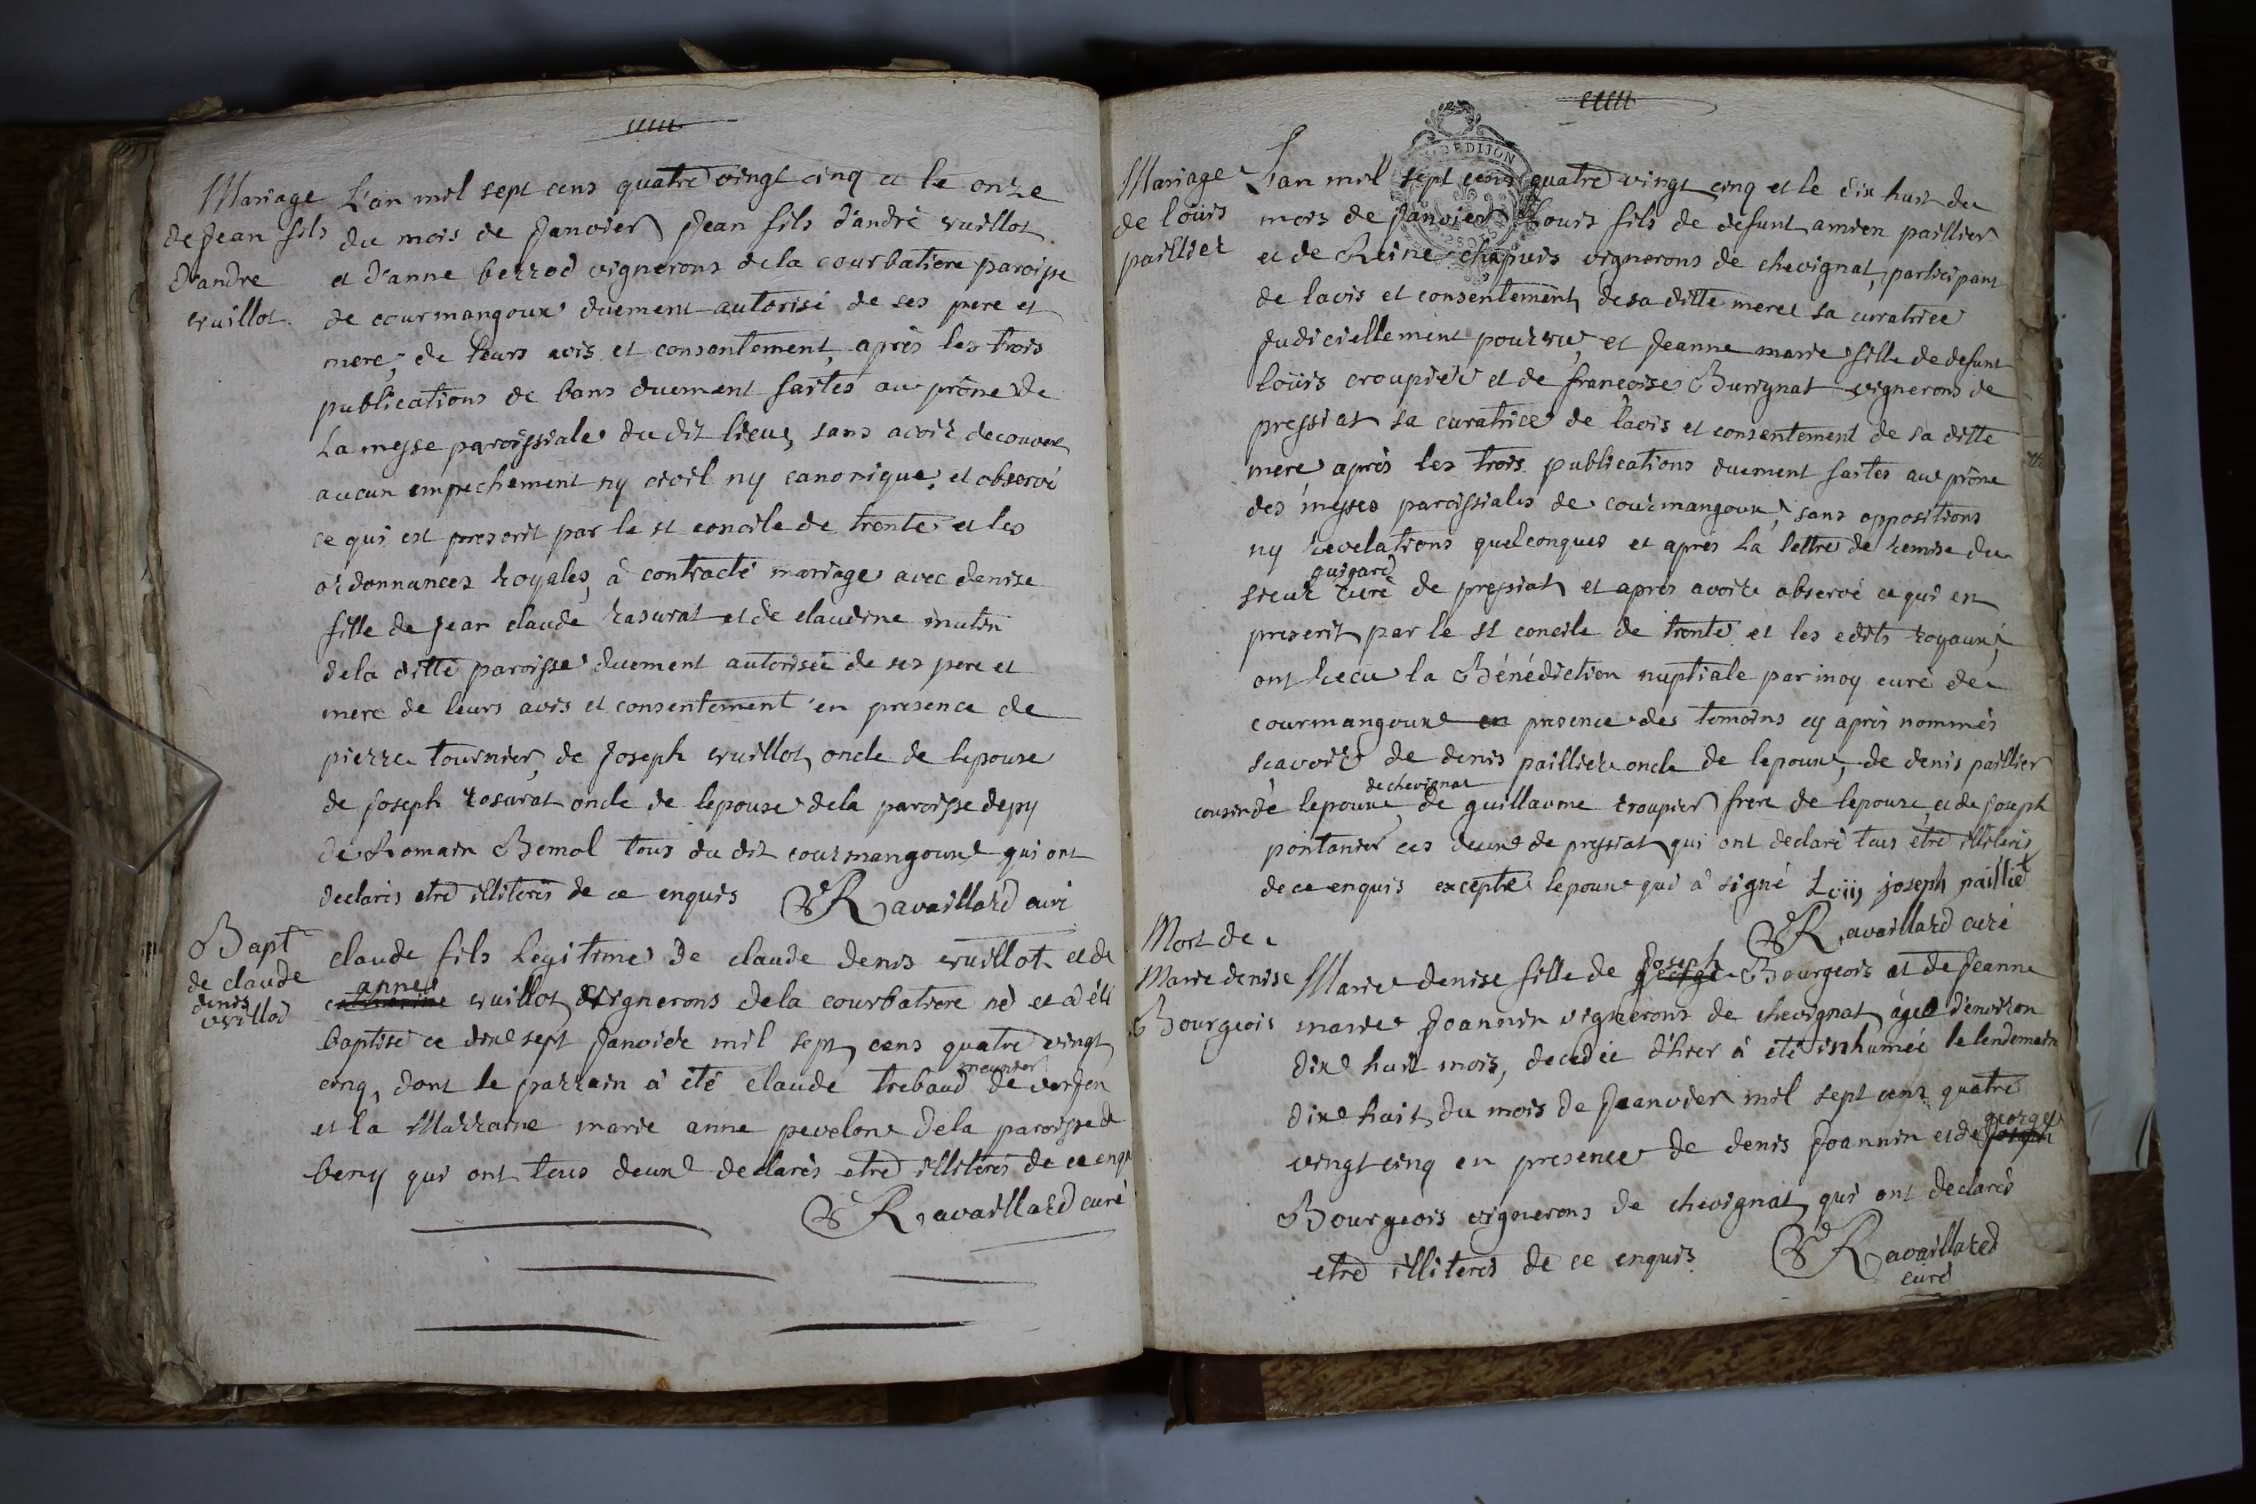 Mariage
de Jean fils
d'andre
vuillot
L'an mil sept cens quatre vingt cinq et le onze
du mois de Janvier Jean fils d'andré vuillot
et d'anne berrod vignerons de la courbatiere paroisse
de courmangoux duement autorisé de ses pere et
mere, de leurs avis et consentement, après les trois
publications de bans duement faites au prône de
La messe paroissiale du dit lieu, sans avoir decouvert
aucun empechement ny civil ny canonique, et observé
ce qui est prescrit par le st concile de trente et les
ordonnances royales, à contracté mariage avec denise
fille de jean claude rasurat et de claudine mutin
dela ditte paroisse duement autorisée de ses pere et
mere de leurs avis et consentement en presence de
pierre tournier, de Joseph vuillot, oncle de lepoux
de joseph rosurat oncle de lepouse dela paroisse depy
de Romain Bemol tous du dit courmangoux qui ont
declarés etre illiterés de ce enquis Ravaillard curé
Bapt
de claude
denis
vuillod
claude fils legitime de claude denis vuillot et de
anne
catherine vuillot vignerons dela courbatiere né et à été
baptisé ce dix sept Janvier mil sept cens quatre vingt
meunier
cinq, dont le parrain à été claude trebaud de verjon
et la Marraine marie anne pevelon dela paroisse de
beny qui ont tous deux declarés etre illiterés de ce enqu
Ravaillard curé
DE DIJON
Mariage
de loüis
paillier
Lan mil sept cens quatre vingt cinq et le dix huit du
mois de Janvier Louis fils de defunt amien paillier
et de Reine chapuis vignerons de chevignat, participant
de lavis et consentement de sa ditte mere et sa curatrice
judiciellement pourvu, et Jeanne marie fille de defunt
loüis croupier et de françoise Burignat vignerons de
pressiat sa curatrice de lavis et consentement de sa ditte
mere après les trois publications duement faites au prône
des messes paroissiales de courmangoux, sans oppositions
ny revelations quelconques et après la lettre de remise du
guigard
sieur curé de pressiat et après avoir observé ce qui en
prescrit par le st concile de trente et les edits royaux,
ont recu la Bénédiction nuptiale par moy curé de
courmangoux en presence des temoins cy après nommés
scavoir de denis paillier oncle de lepoux, de denis paillier
de chevignat
cousin de lepoux, de guillaume croupier frere de lepouse, et de joseph
pontanier ces deux de pressiat qui ont declaré tous etre illiterés
de ce enquis excepté lepoux qui à signé Loiis joseph paillié
Ravaillard curé
Mort de
Marie denise
Bourgeois
Joseph
Marie denise fille de George Bourgeois et de Jeanne
marie Joannin vignerons de chevignat, agée d'environ
dix huit mois, decedée d'hier à été inhumée le lendemain
dix huit du mois de Janvier mil sept cens quatre
george
vingt cinq en presence de denis Joannin et de Joseph
Bourgeois vignerons de chevignat qui ont declarés
etre illiterés de ce enquis Ravaillard
curé